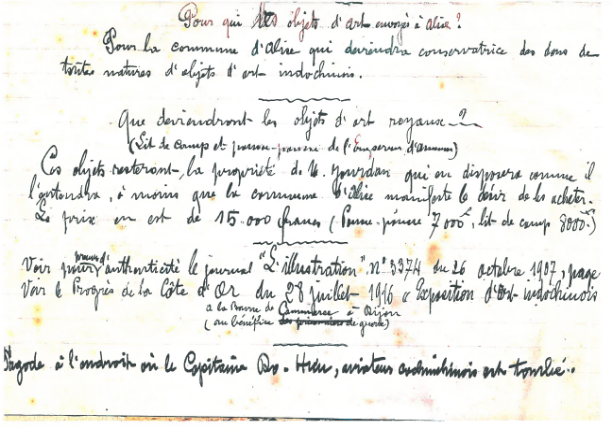 Pour qui les objets d'art envoyés à Alise?
Pour la commune d'Alise qui deviendra conservatrice des dons de
toutes natures d'objets d'art indochinois.
Que deviendront les objets d'art royaux?
(Lit de camp et pousse-pousse de l'Empereur d'Annam)
Ces objets resteront, la propriété de M. Jourdan qui en disposera comme il
l'entendra, à moins que la commune d'Alise manifeste le désir de les acheter.
Le prix en est de 15.000 francs (Pousse-pousse 7000f, lit de camp 8000f)
Voir pour d'authenticité le journal "L'illustration" n° 3374 du 26 octobre 1907, page
Voir le Progrès de la Côte d'Or du 28 juillet 1916 "Exposition d'Art indochinois
à la Bourse de Commerce à Dijon
(au bénéfice des prisonniers de guerre)
Pagode à l'endroit où le Capitaine Do-Hieu, aviateur cochinchinois est tombé.